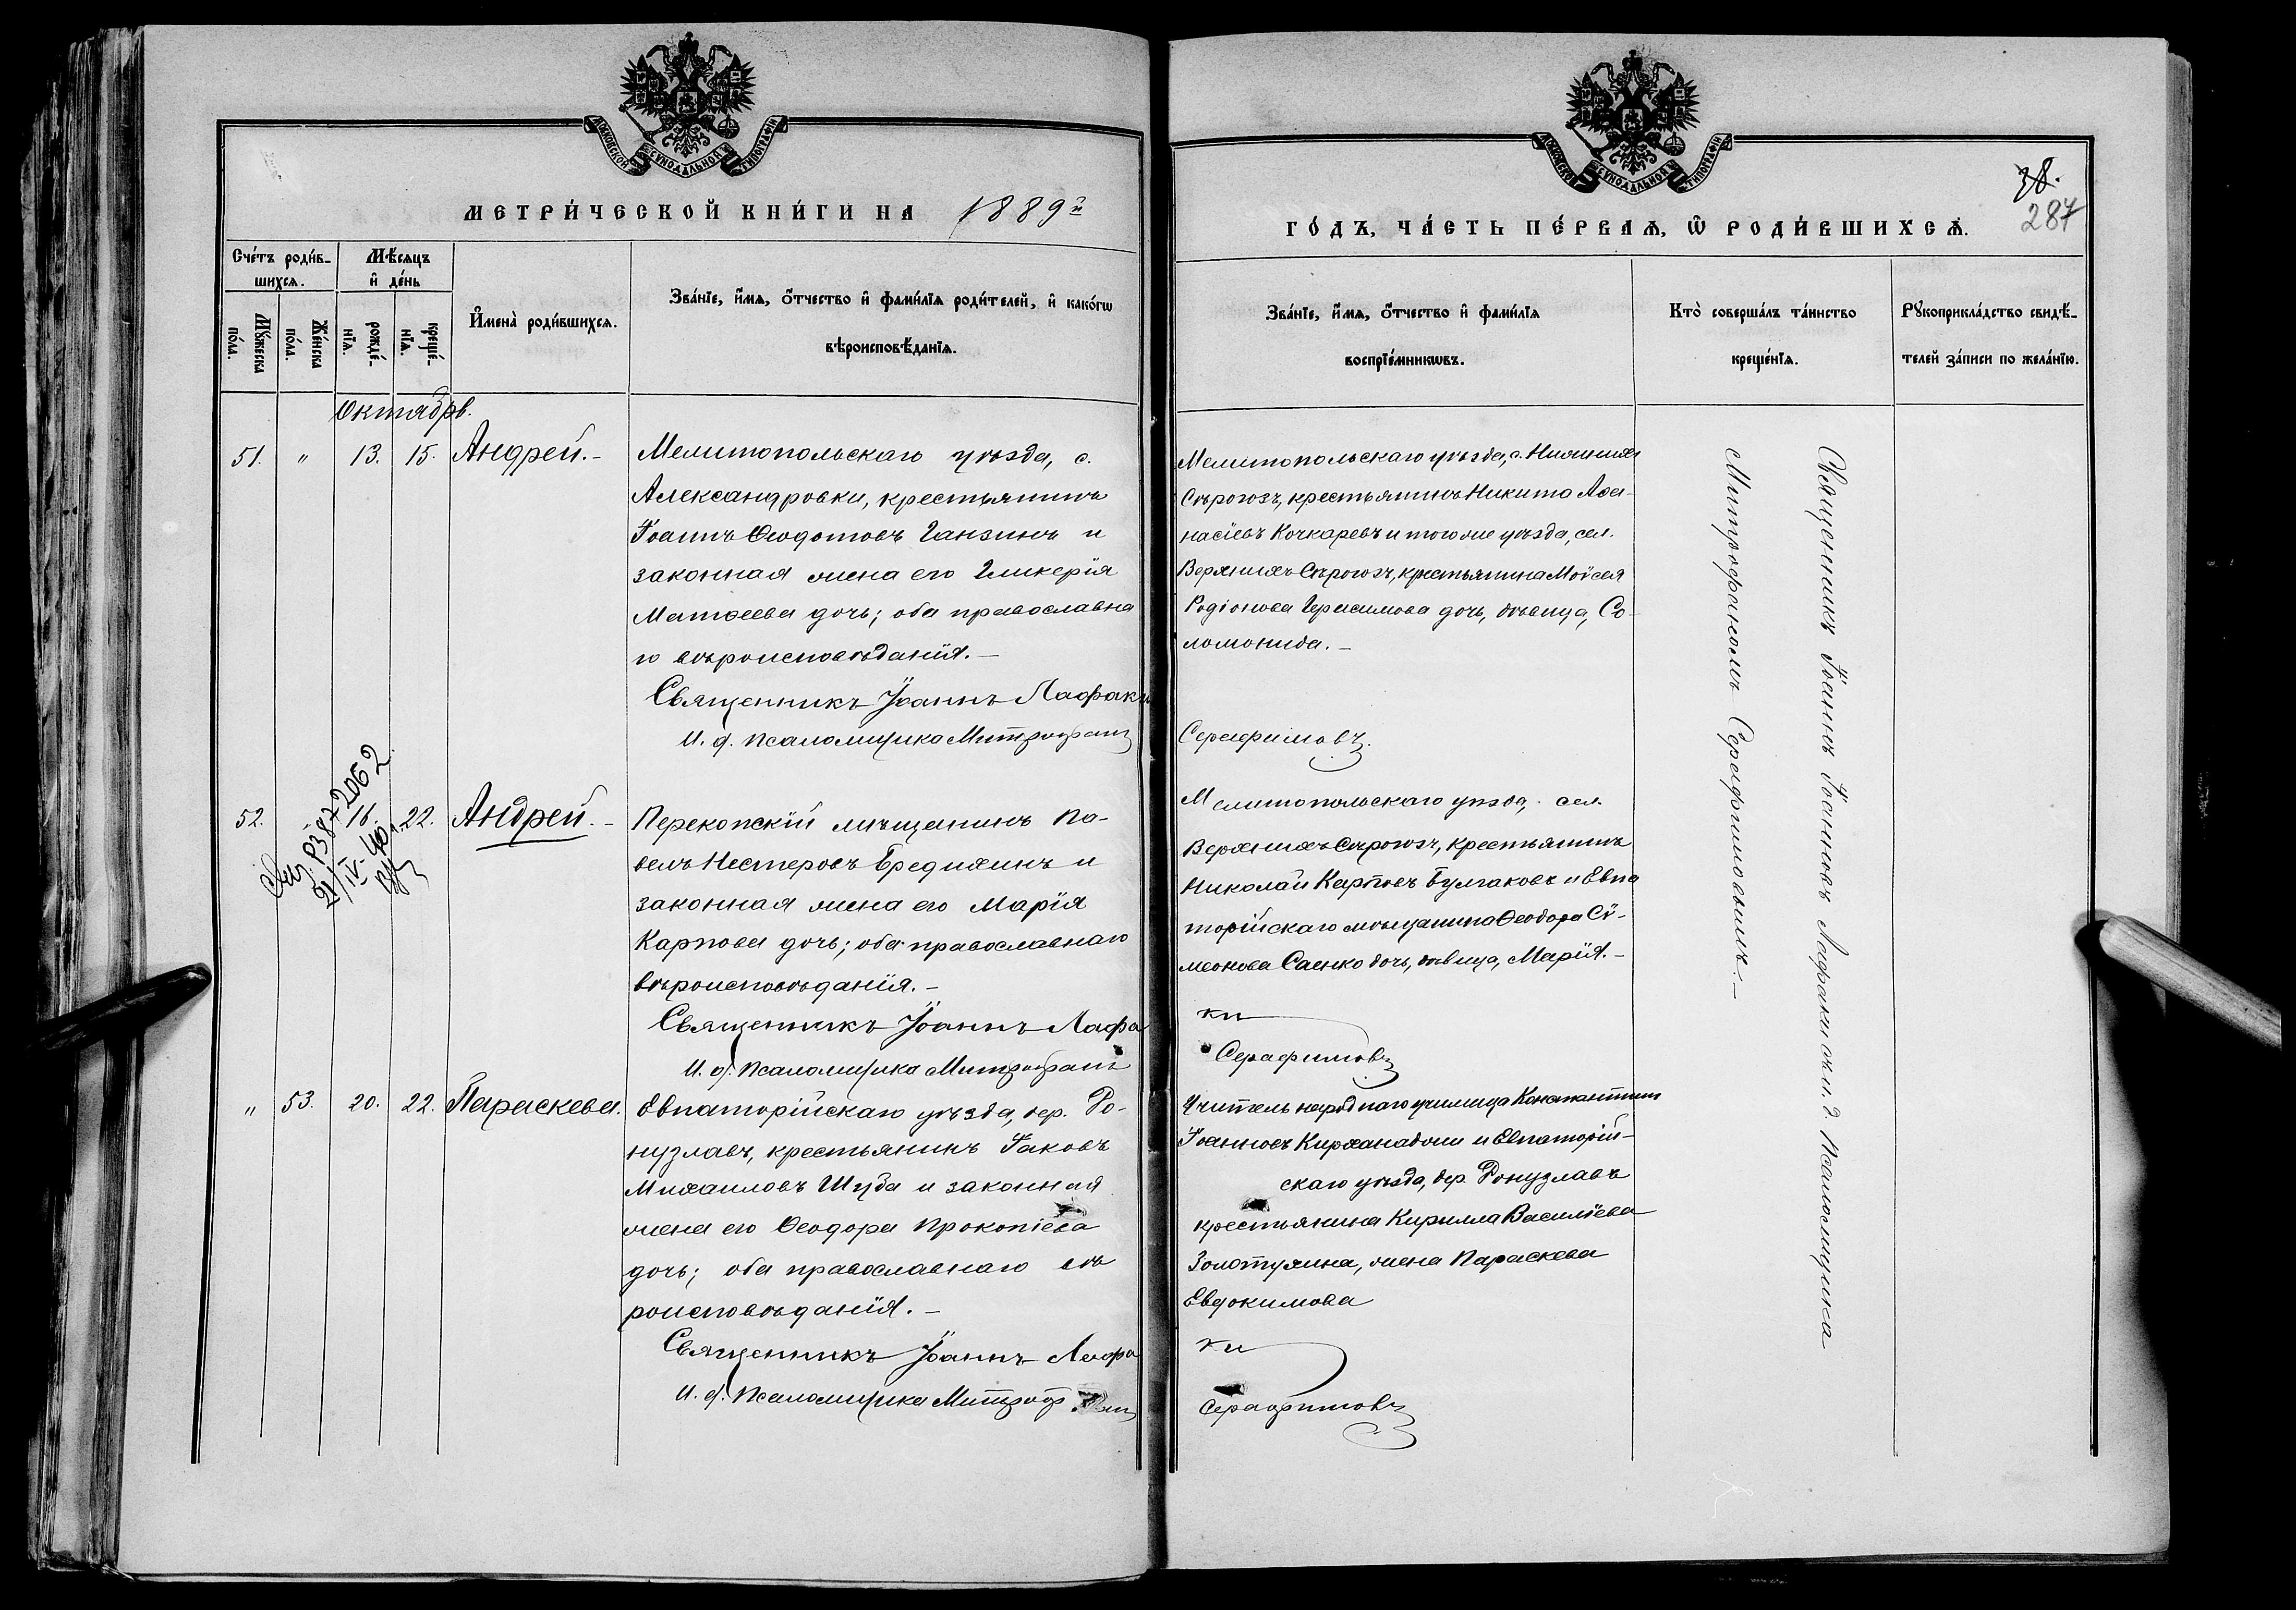 МОСКОВСКОЙ СУНОДАЛЬНОЙ ТИПОГРАФІИ
МЕТРИ́ЧЕСКОЙ КНИ́ГИ НА 1889й
Сче́тъ роди́в-
шихсѧ.
Мѣ́сяцъ
и҆ де́нь
Мꙋ́жеска
по́ла.
Же́нска
по́ла.
рожде́-
нїѧ.
креще́-
нїѧ.
И҆мена̀ роди́вшихсѧ.
Зва́нїе, и҆́мѧ, ѻ҆́тчество и҆ фами́лїѧ роди́телей, и҆ како́гѡ
вѣроисповѣ́данїѧ.
Октябрь.
51. " 13. 15. Андрей.-
Мелитопольскаго уѣзда, с.
Александровки, крестьянинъ
Іоаннъ Ѳеодотовъ Ганзинъ и
законная жена его Гликерія
Матѳеева дочь; оба православна
го вѣроисповѣданія.-
Священникъ Іоаннъ Лафаки
И. д. псаломщика Митрофанъ
52. " 16. 22. Андрей.-
Р387 2062
21/IV-40г.
Перекопскій мѣщанинъ Па-
велъ Нестеровъ Бредихинъ и
законная жена его Марія
Карпова дочь; оба православнаго
вѣроисповѣданія.-
Священникъ Іоаннъ Лафа
И. д. псаломщика Митрофанъ
" 53. 20. 22. Параскева.
Евпаторійскаго уѣзда, дер. До-
нузлавъ, крестьянинъ Іаковъ
Михаиловъ Шуба и законная
жена его Ѳеодора Прокопіева
дочь; оба православнаго вѣ
роисповѣданія.-
Священникъ Іоаннъ Лафа
И. д. псаломщика Митрофанъ
МОСКОВСКОЙ СУНОДАЛЬНОЙ ТИПОГРАФІИ
38.
287
ГО́ДЪ, ЧА́СТЬ ПЕ́РВАѦ, Ѡ҆ РОДИ́ВШИХСѦ.
Зва́нїе, и҆́мѧ, ѻ҆́тчество и҆ фами́лїѧ
воспрїе́мникѡвъ.
Кто̀ соверша́лъ та́инство
креще́нїѧ.
Рꙋкоприкла́дство свидѣ́-
телей за́писи по жела́нїю.
Мелитопольскаго уѣзда, с. Нижнихъ
Сѣрогозъ, крестьянинъ Никита Аѳа-
насіевъ Кочкаревъ и того же уѣзда, сел.
Верхнихъ Сѣрогозъ, крестьянина Моисея
Родіонова Герасимова дочь, дѣвица, Со-
ломонида.-
Серафимовъ.
Мелитопольскаго уѣзда, сел.
Верхнихъ Сѣрогозъ, крестьянинъ
Николай Карповъ Булгаковъ и Евпа
торійскаго мѣщанина Ѳеодора Сѵ-
меонова Саенко дочь, дѣвица, Марія.-
ки
Серафимовъ
Учитель народнаго училища Константинъ
Іоанновъ Кирханадоми и Евпаторій-
скаго уѣзда, дер. Донузлавъ
крестьянина Кирилла Василіева
Золотухина, жена Параскева
Евдокимова
ки
Серафимовъ
Священникъ Іоаннъ Іоанновъ Лафаки съ и. д. псаломщика
Митрофаномъ Серафимовымъ.-